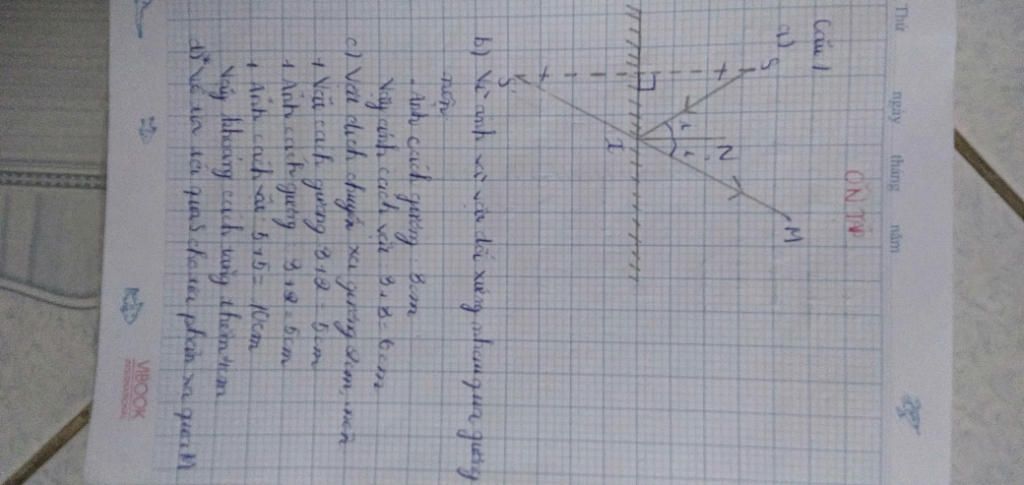 Thứ ngày tháng năm
ÔN TẬP
Câu 1
a)
S
N
M
i
i'
I
S'
b) Vì ảnh và vật đối xứng nhau qua gương
nên
Ảnh cách gương 3cm
Vậy ảnh cách vật 3+3=6cm
c) Vật dịch chuyển xa gương 2cm, nên
+ Vật cách gương 3+2=5cm
+ Ảnh cách gương 3+2=5cm
+ Ảnh cách vật 5+5=10cm
Vậy khoảng cách tăng thêm 4cm
d) Vẽ tia tới qua S cho tia phản xạ qua M
VIBOOK